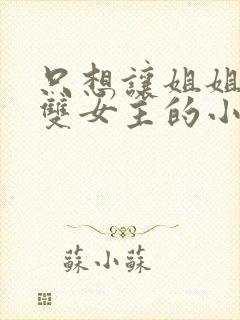 只想讓姐姐
雙女主的小
蘇小蘇